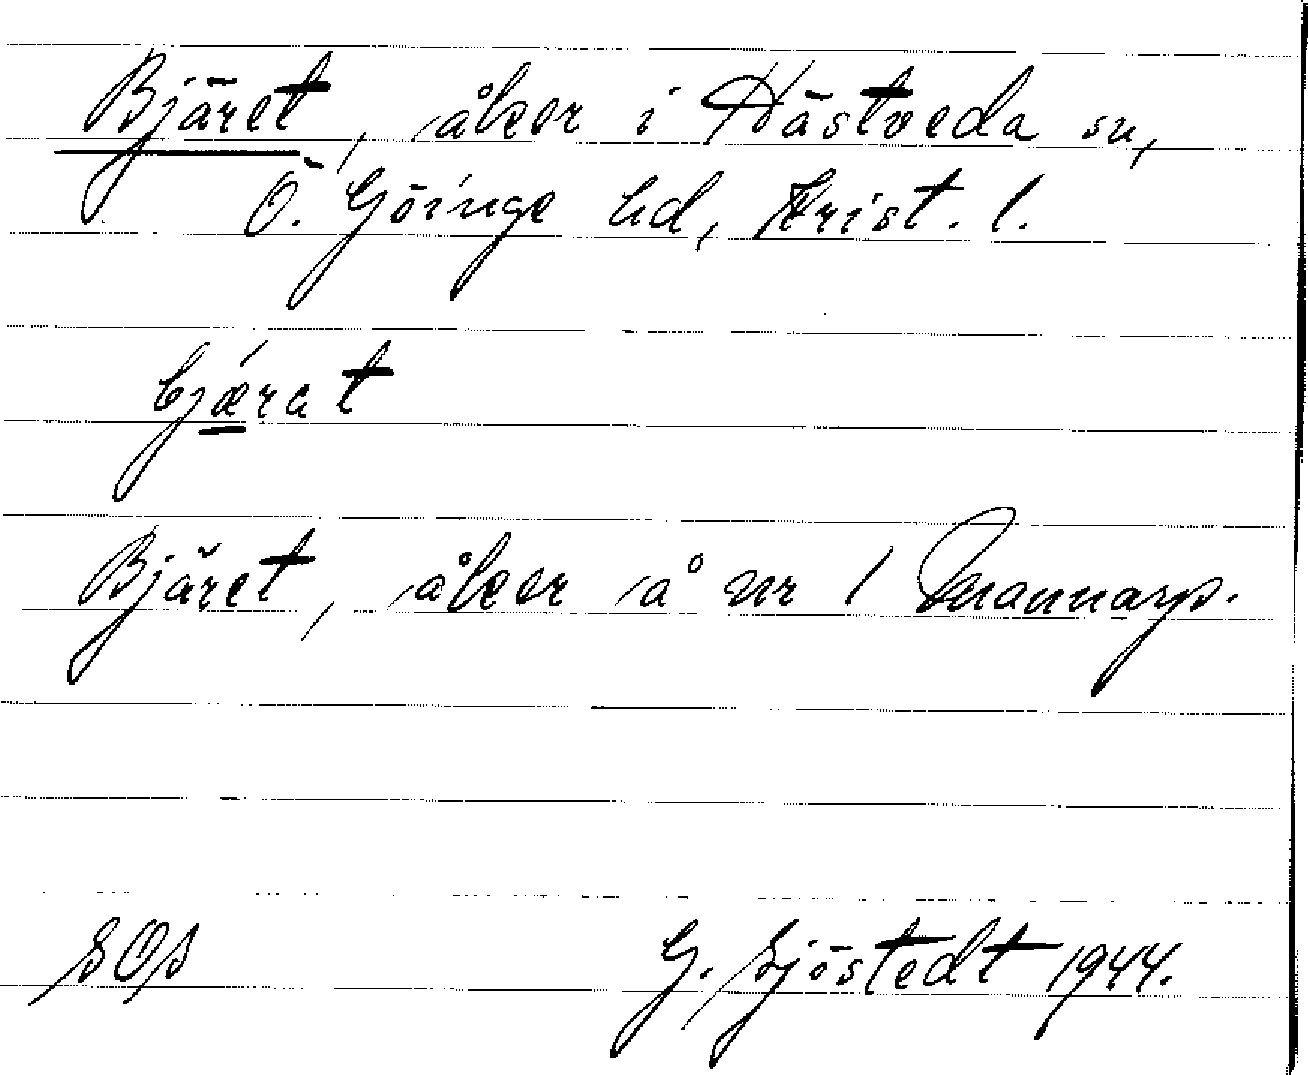 Bjäret, åker i Hästveda sn,
Ö. Göinge hd, Krist. l.
bjǽrat
Bjäret, åker å nr 1 Mannarp.
SOS G. Sjöstedt 1944.